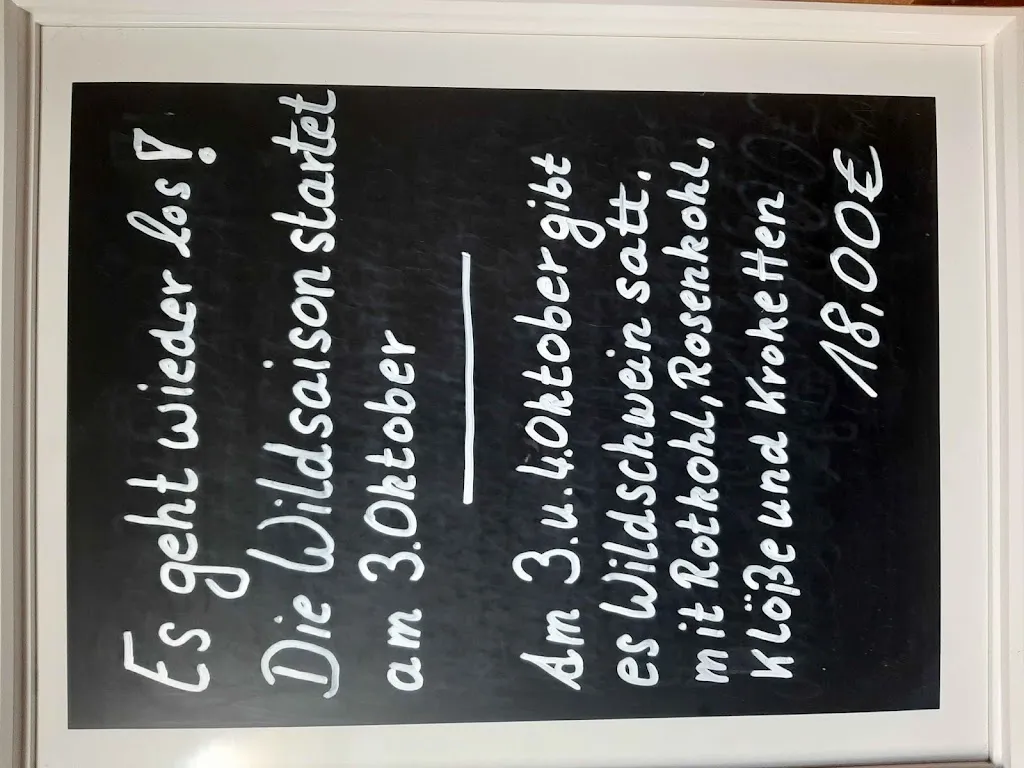 Es geht wieder los!
Die Wildsaison startet
am 3. Oktober
Am 3. u. 4. Oktober gibt
es Wildschwein satt.
mit Rotkohl, Rosenkohl,
Klöße und Kroketten
18,00€